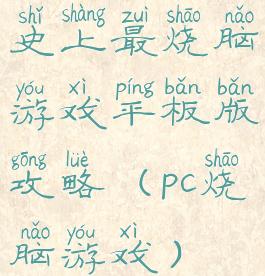 shǐ shàng zuì shāo nǎo
史上最烧脑
yóu xì píng bǎn bǎn
游戏平板版
gōng lüè shāo
攻略（pc烧
nǎo yóu xì
脑游戏）